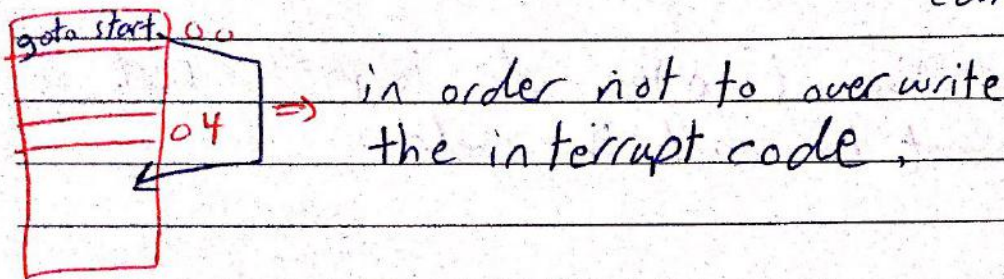 goto start 00
in order not to overwrite
04
the interrupt code,